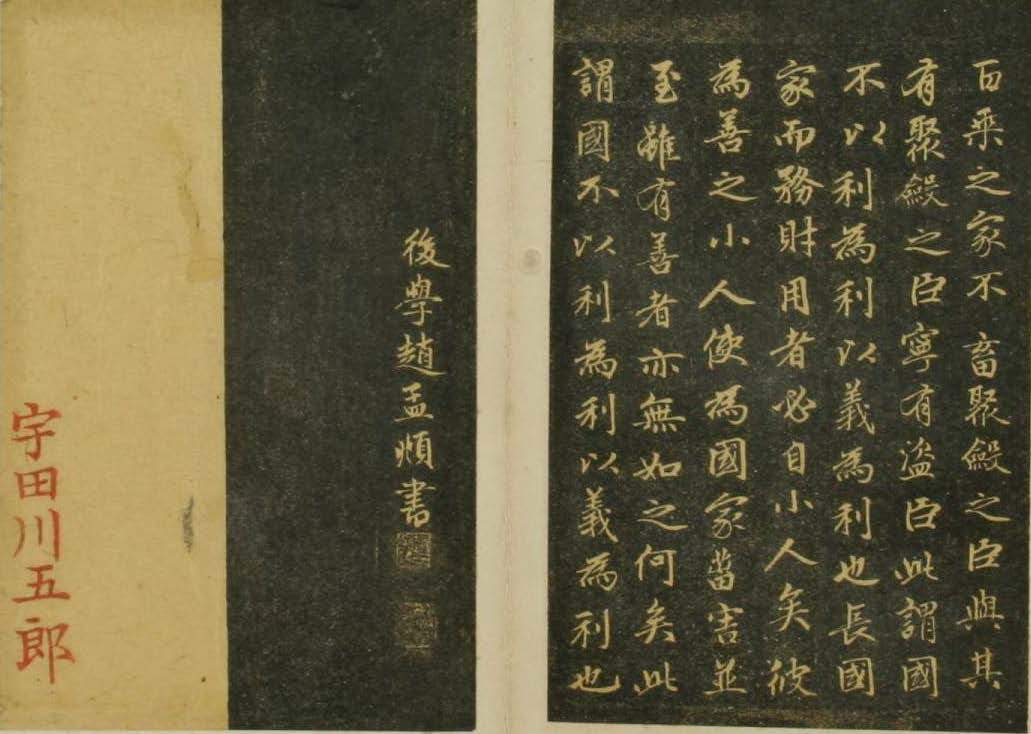 百乘之家不畜聚斂之臣與其
有聚斂之臣寧有盜臣此謂國
不以利為利以義為利也長國
家而務財用者必自小人矣彼
為善之小人使為國家菑害並
至雖有善者亦無如之何矣此
謂國不以利為利以義為利也
後學趙孟頫書
宇田川五郎